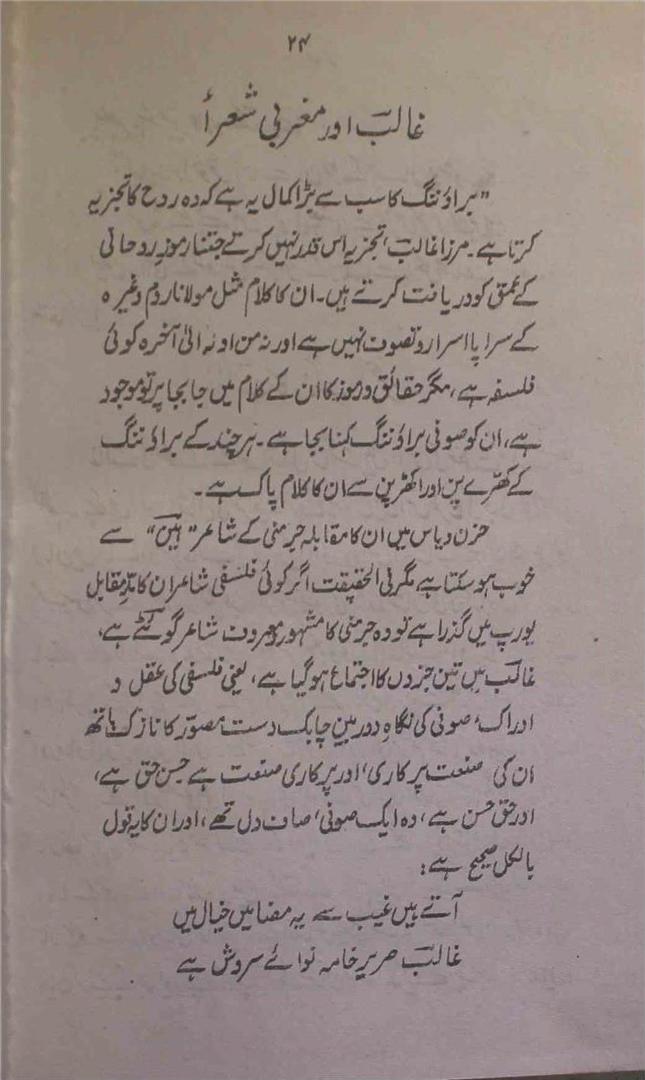 ۲۴
غالبؔ اور مغربی شعرأ
”براؤننگ کا سب سے بڑا کمال یہ ہے کہ وہ روح کا تجزیہ
کرتا ہے۔ مرزا غالبؔ تجزیہ اس قدر نہیں کرتے جتنا رموزِ روحانی
کے عمق کو دریافت کرتے ہیں۔ ان کا کلام مثل مولانا روم وغیرہ
کے سراپا اسرار و تصوف نہیں ہے اور نہ من اولہ الیٰ آخرہ کوئی
فلسفہ ہے، مگر حقائق و رموز کا ان کے کلام میں جا بجا پر تو موجود
ہے، ان کو صوفی براؤننگ کہنا بجا ہے۔ ہر چند کے براؤننگ
کے کھرّے پن اور اکھڑپن سے ان کا کلام پاک ہے۔
حزن و یاس میں ان کا مقابلہ جرمنی کے شاعر ”ہینؔ“ سے
خوب ہو سکتا ہے مگر فی الحقیقت اگر کوئی فلسفی شاعر ان کا مدِّ مقابل
یورپ میں گذرا ہے تو وہ جرمنی کا مشہور و معروف شاعر گوئٹے ہے،
غالبؔ میں تین چیزوں کا اجتماع ہو گیا ہے، یعنی فلسفی کی عقل و
ادراک، صوفی کی نگاہِ دوربین چابک دست مصوّر کا نازک ہاتھ
ان کی صنعت پرکاری، اور پرکاری صنعت ہے حسن حق ہے،
اور حق حسن ہے، وہ ایک صوفی، صاف دل تھے، اور ان کا یہ قول
بالکل صحیح ہے:
آتے ہیں غیب سے یہ مضامیں خیال میں
غالبؔ صریرِ خامہ نوائے سروش ہے